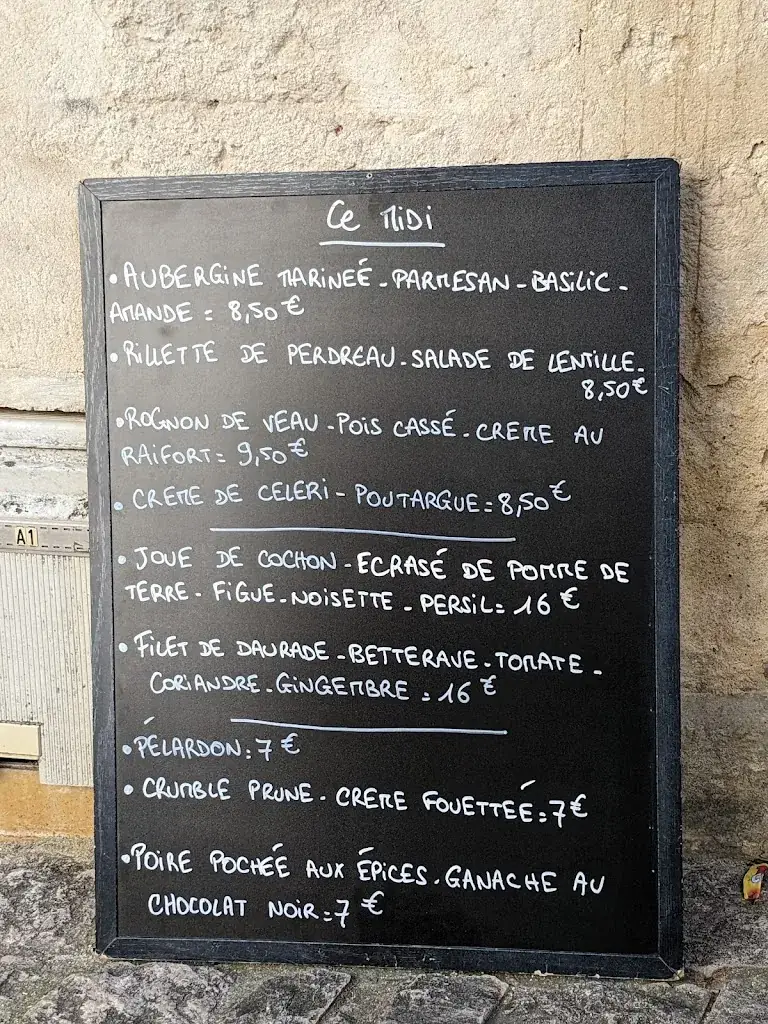 Ce MIDI
• AUBERGINE MARINEÉ - PARMESAN - BASILIC -
AMANDE = 8,50 €
• RILLETTE DE PERDREAU - SALADE DE LENTILLE -
8,50€
• ROGNON DE VEAU - POIS CASSÉ - CREME AU
RAIFORT = 9,50 €
• CREME DE CELERI - POUTARGUE = 8,50 €
A1
• JOUE DE COCHON - ECRASÉ DE POMME DE
TERRE - FIGUE - NOISETTE - PERSIL = 16 €
• FILET DE DAURADE - BETTERAVE - TOMATE -
CORIANDRE - GINGEMBRE = 16 €
• PÉLARDON : 7 €
• CRUMBLE PRUNE - CREME FOUETTEÉ = 7€
• POIRE POCHÉE AUX ÉPICES - GANACHE AU
CHOCOLAT NOIR = 7 €